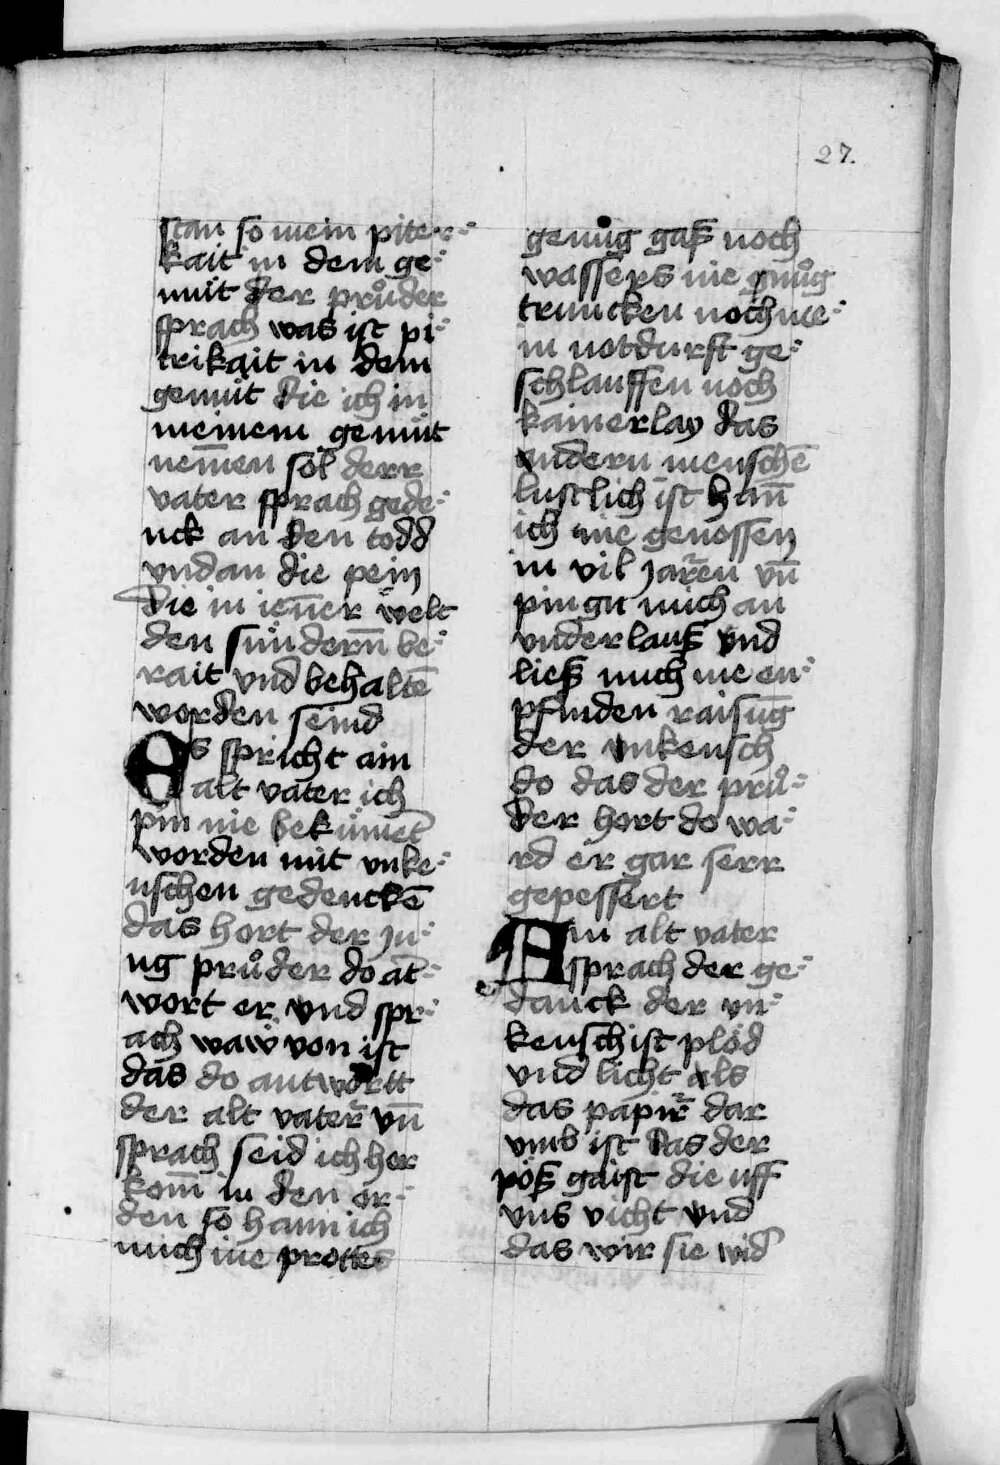 27.
stan so mein piter-
kait in dem ge-
müt der průder
sprach was ist pi-
trikait in dem
gemüt die ich in
meinem gemüt
nem̄en sol derr
vater sprach gede-
nck an den todd
vnd an die pein
die in ien̄er welt
den sündern̄ be-
rait vnd behaltē
worden seind
Es spricht ain
alt vater ich
pin nie bekümet
worden mit vnke-
uschen gedenckē
das hort der ju-
ng průder do āt-
wort er vnd spr-
ach waw von ist
das do antwortt
der alt vater vn̄
sprach seid ich her
kom̄ in den or-
den so hann ich
mich nie prottes
genůg gaß noch
wassers nie gnůg
truncken noch nie-
in notdurft ge-
schlauffen noch
kainerlay das
andern menschē
lustlich ist han̄
ich nie genossen
in vil jaren vn̄
pin gti mich an
vnderlauß vnd
ließ mich nie en-
pfinden raisūg
der vnkeusch
do das der prů-
der hort do wa-
rd er gar serr
gepessert
Ain alt vater
sprach der ge-
danck der vn-
keusch ist plöd
vnd licht als
das papir dar
vmb ist das der
pöß gaist die uff
vns vicht vnd
das wir sie wid